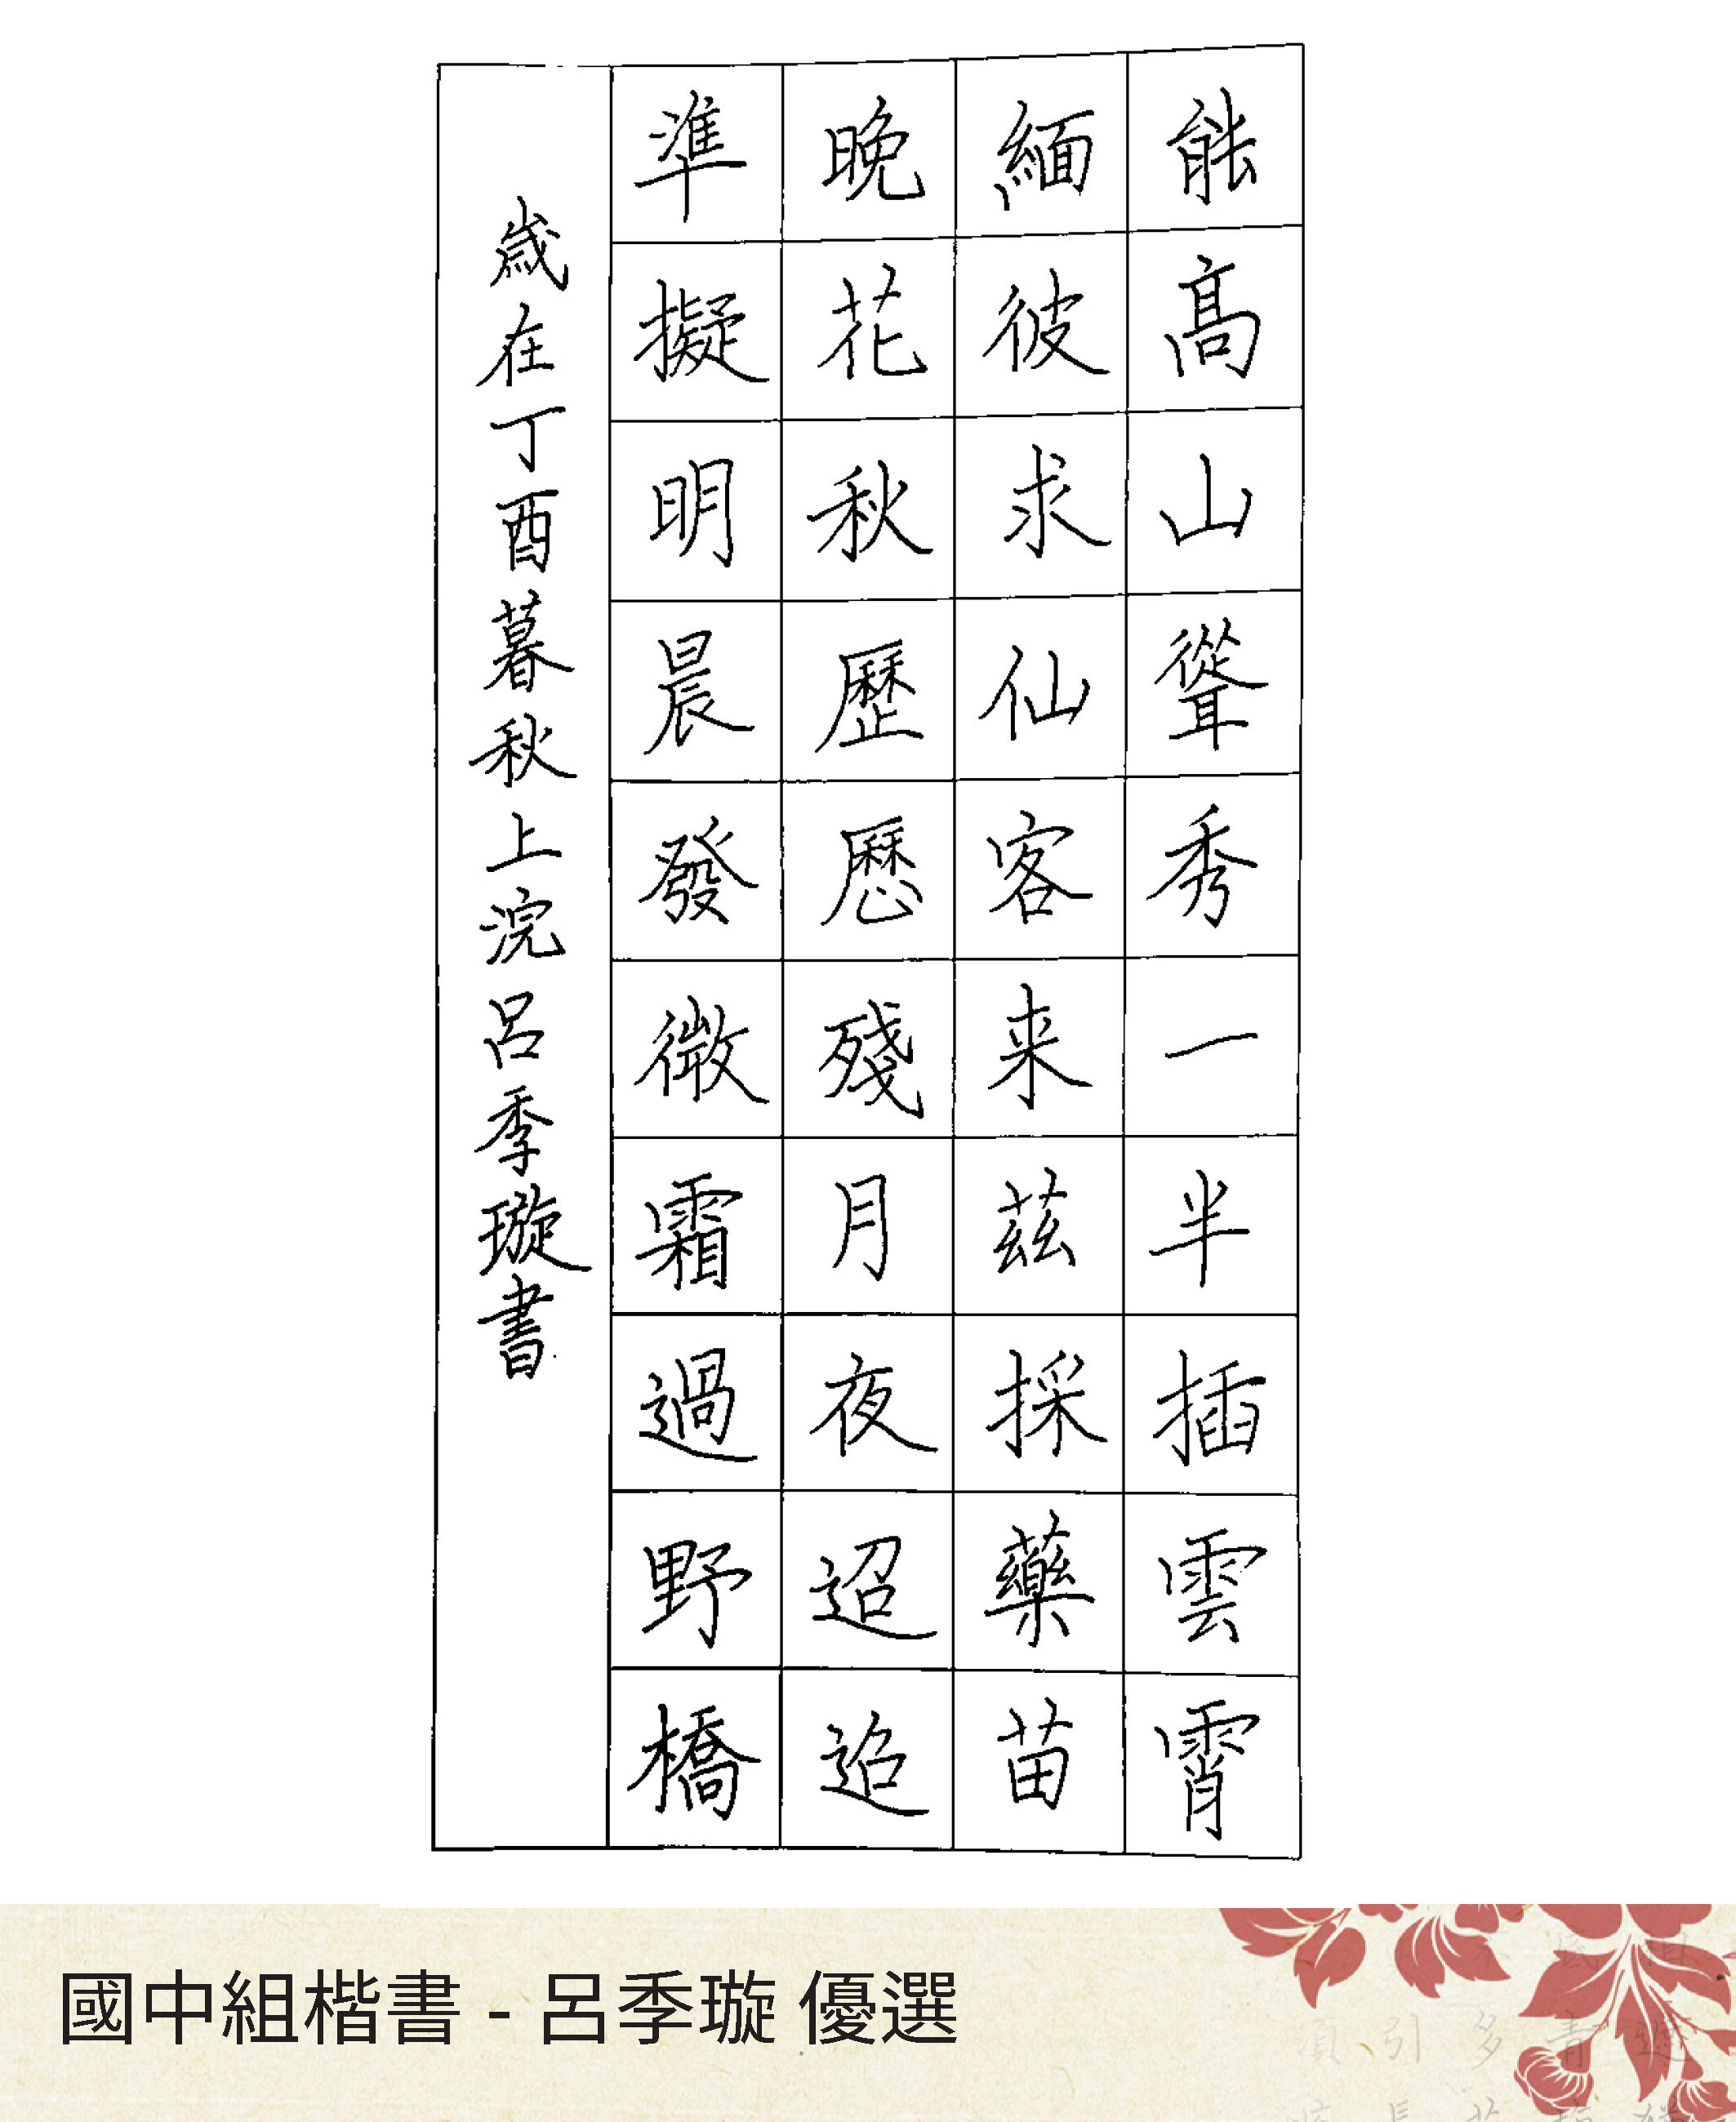 能高山聳秀一半插雲霄
緬彼求仙客来茲採藥苗
晚花秋歷歷殘月夜迢迢
準擬明晨發微霜過野橋
歲在丁酉暮秋上浣呂季璇書
國中組楷書 - 呂季璇 優選